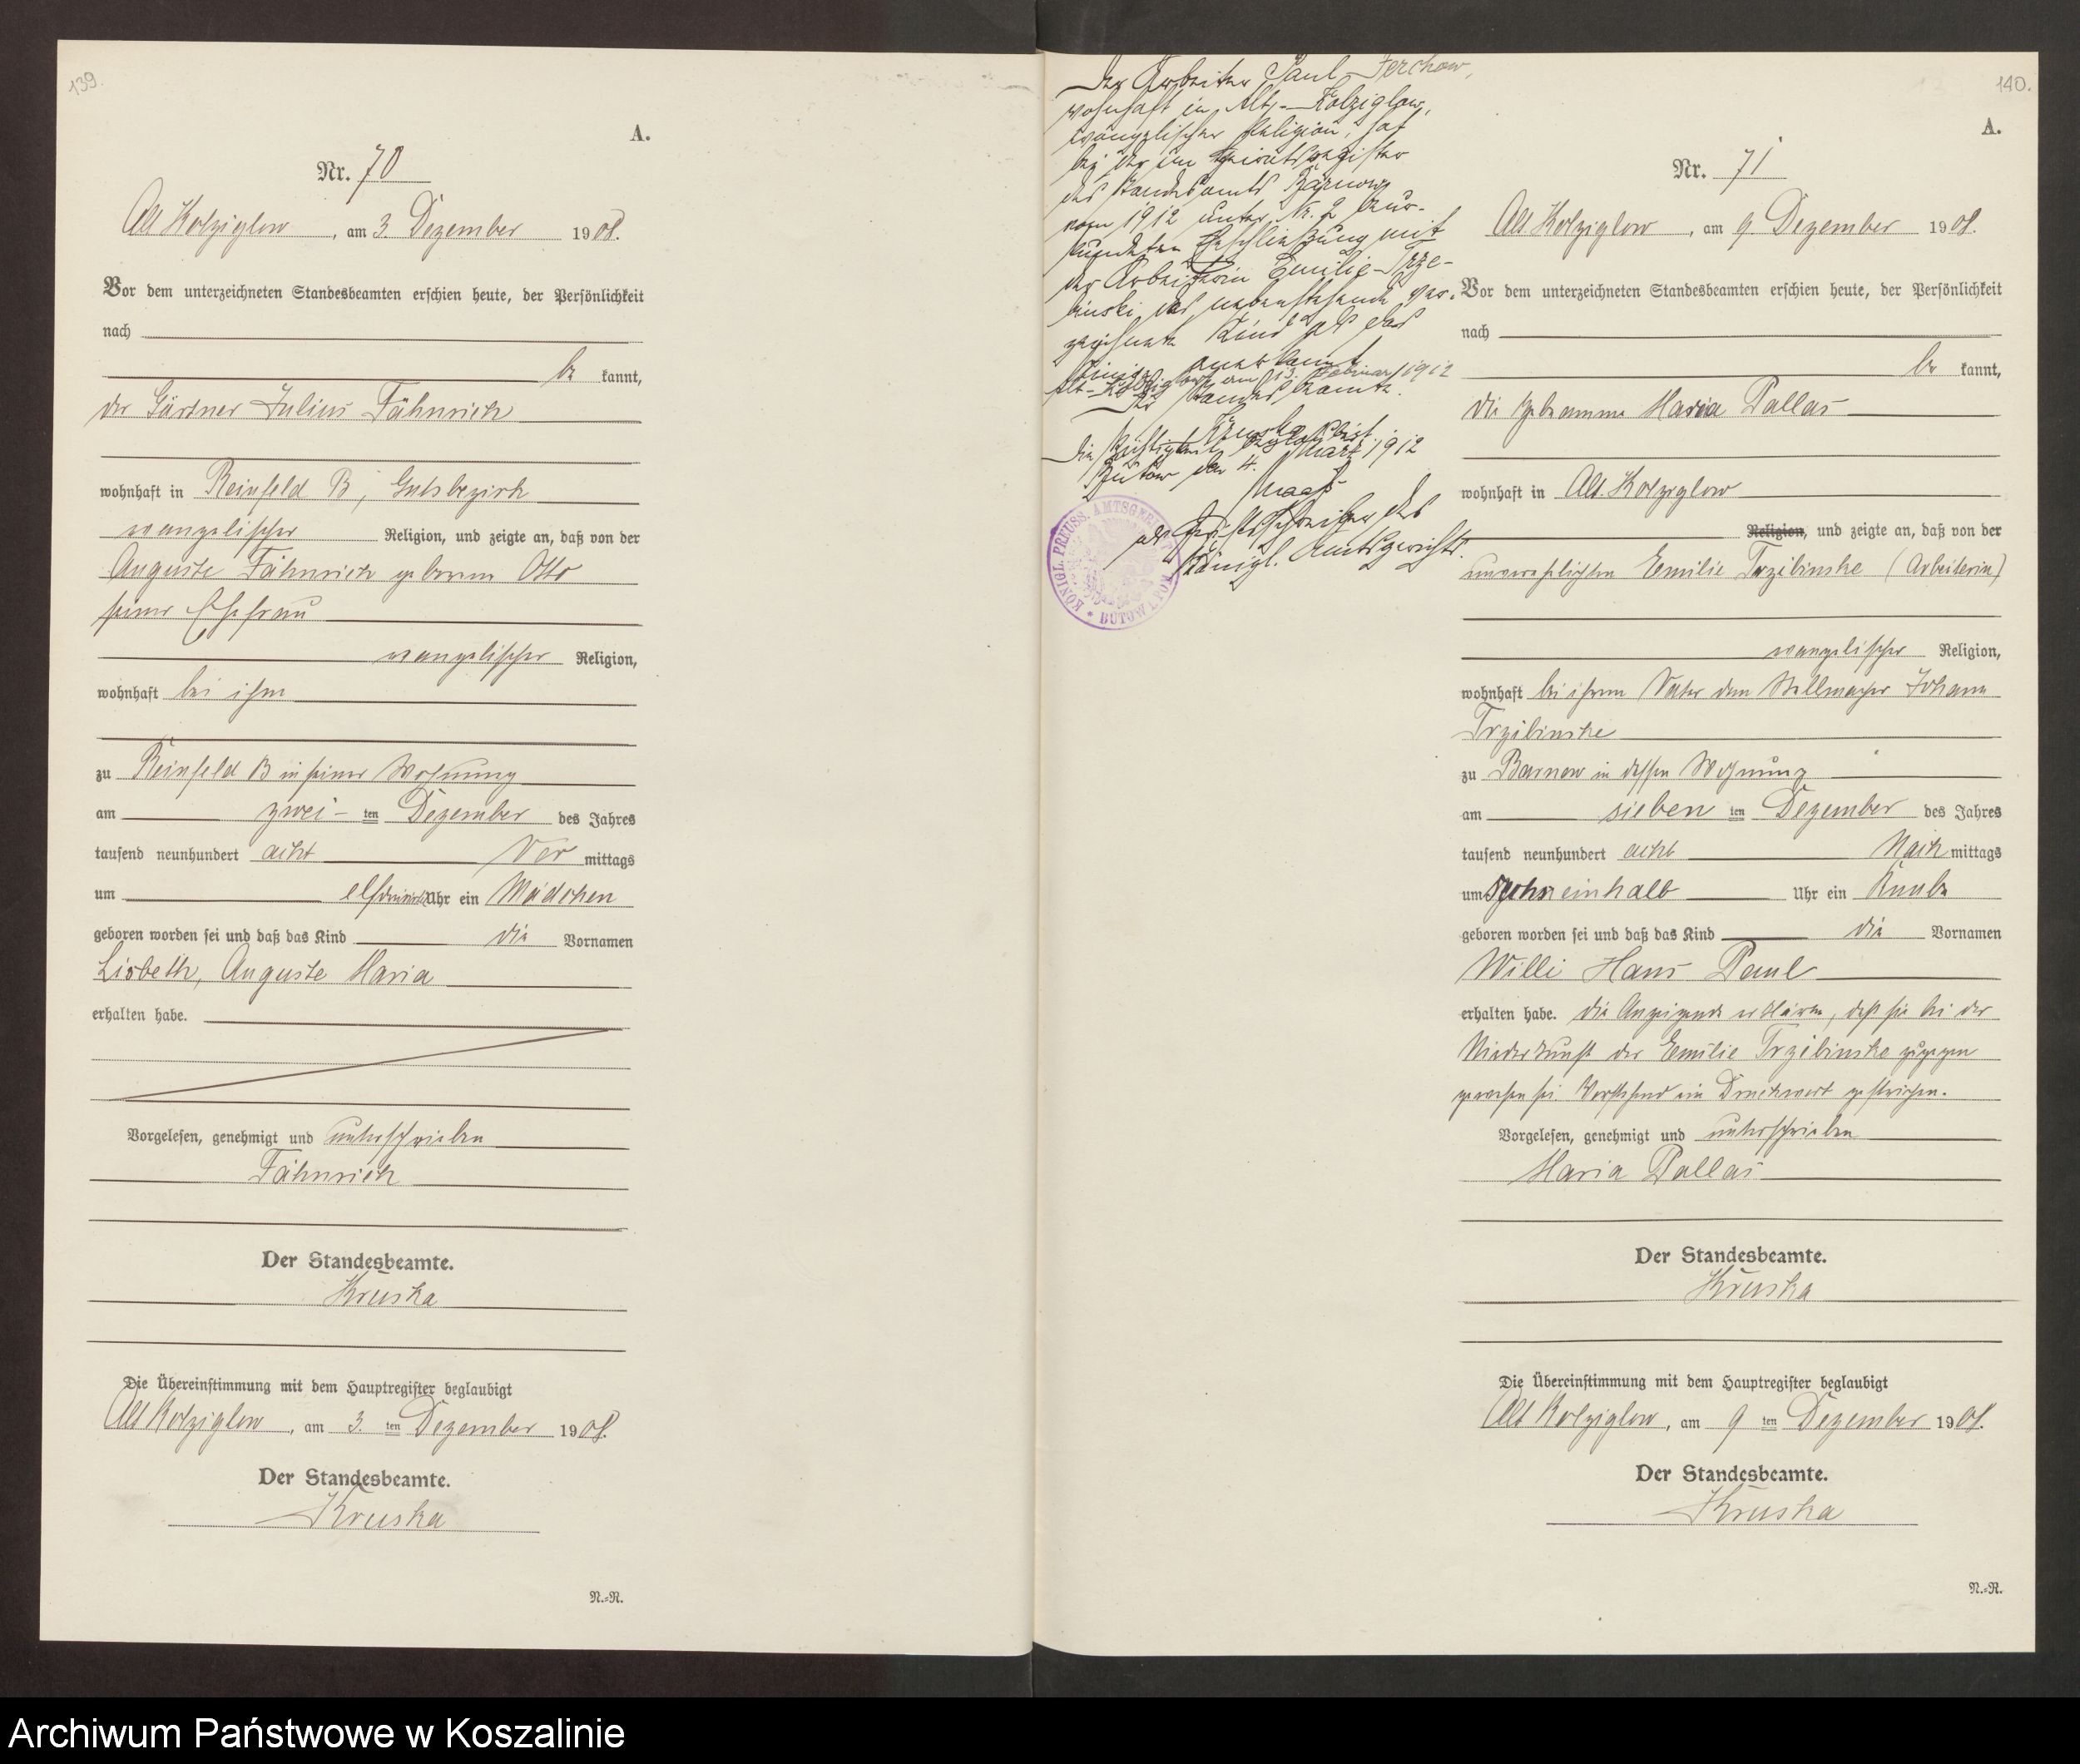 139.
A.
Nr. 70
Alt Kolziglow, am 3. Dezember 1908.
Vor dem unterzeichneten Standesbeamten erschien heute, der Persönlichkeit
nach
be kannt,
der Gärtner Julius Fähnrich
wohnhaft in Reinfeld B, Gutsbezirk
evangelischer Religion, und zeigte an, daß von der
Auguste Fähnrich geborene Otto
seiner Ehefrau
evangelischer Religion,
wohnhaft bei ihm
zu Reinfeld B in seiner Wohnung
am zwei-ten Dezember des Jahres
tausend neunhundert acht Vor mittags
um elf Uhr ein Mädchen
geboren worden sei und daß das Kind die Vornamen
Lisbeth, Auguste Maria
erhalten habe.
Vorgelesen, genehmigt und unterschrieben
Fähnrich
Der Standesbeamte.
Kruska
Die Übereinstimmung mit dem Hauptregister beglaubigt
Alt Kolziglow, am 3. ten Dezember 1908.
Der Standesbeamte.
Kruska
N.=R.
Der Arbeiter Paul Jerchow,
wohnhaft in Alt-Kolziglow,
evangelischer Religion, hat
bei der im Heiratsregister
des Standesamts Barnow
vom 1912 unter Nr. 2 beur-
kundeten Eheschließung mit
der Arbeiterin Emilie Trze-
binski das nebenstehende ver-
zeichnete Kind als das
seinige anerkannt.
Alt-Kolziglow, am 13. Februar 1912
Der Standesbeamte.
Kruska
Die Richtigkeit beglaubigt
Bütow den 4. März 1912
als Gerichtsschreiber des
Königl. Amtsgerichts.
KÖNIGL. PREUSS. AMTSGERICHT
* BÜTOW I. POM
140.
A.
Nr. 71
Alt Kolziglow, am 9. Dezember 1908.
Vor dem unterzeichneten Standesbeamten erschien heute, der Persönlichkeit
nach
be kannt,
die Hebamme Maria Pallas
wohnhaft in Alt. Kolziglow
Religion, und zeigte an, daß von der
unverehelichten Emilie Trzebinske (Arbeiterin)
evangelischer Religion,
wohnhaft bei ihrem Vater dem Stellmacher Johann
Trzebinske
zu Barnow in dessen Wohnung
am sieben ten Dezember des Jahres
tausend neunhundert acht Nach mittags
um zehneinhalb Uhr ein Knabe
geboren worden sei und daß das Kind die Vornamen
Willi Hans Paul
erhalten habe. Die Anzeigende erklärte, daß sie bei der
Niederkunft der Emilie Trzebinske zugegen
gewesen sei. Vorstehend ein Druckwort gestrichen.
Vorgelesen, genehmigt und unterschrieben
Maria Pallas
Der Standesbeamte.
Kruska
Die Übereinstimmung mit dem Hauptregister beglaubigt
Alt Kolziglow, am 9 ten Dezember 1908.
Der Standesbeamte.
Kruska
N.=R.
Archiwum Państwowe w Koszalinie